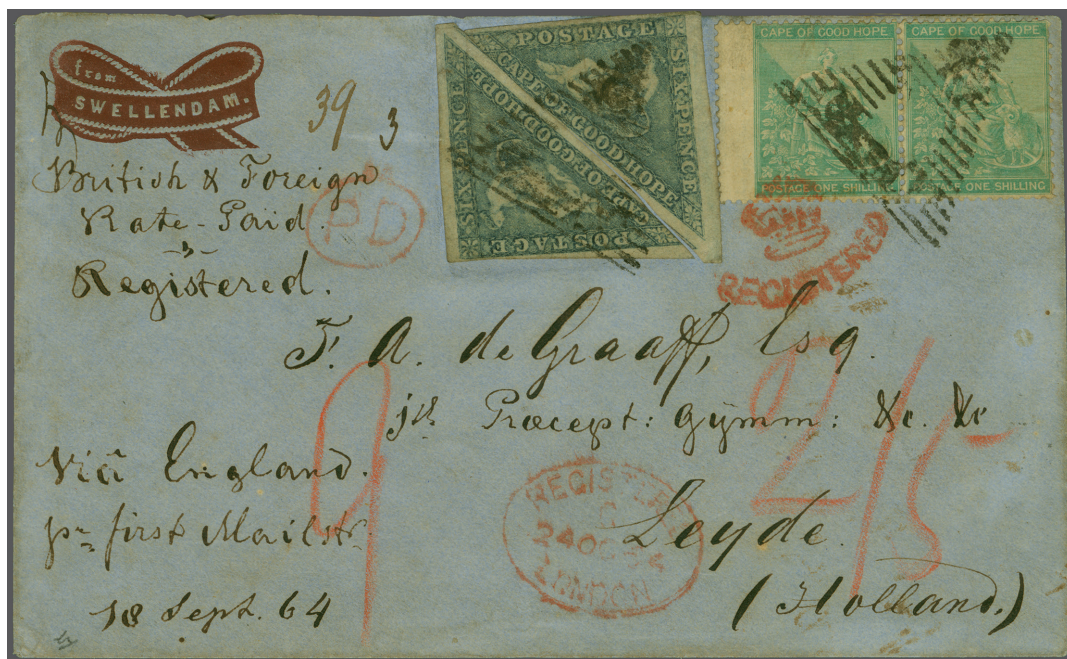 from
SWELLENDAM.
39 3
British & Foreign
Rate-Paid.
Registered.
PD
POSTAGE
SIX PENCE
CAPE OF GOOD HOPE
SIX PENCE
CAPE OF GOOD HOPE
POSTAGE
CAPE OF GOOD HOPE
POSTAGE ONE SHILLING
CAPE OF GOOD HOPE
POSTAGE ONE SHILLING
REGISTERED
F. A. de Graaff, Esq.
Præcept: Gymm: &c. &c
9
2/5
Via England.
pr first Mailstr
18 Sept. 64
REGISTERED
24 OC 64
LONDON
Leyde.
(Holland.)